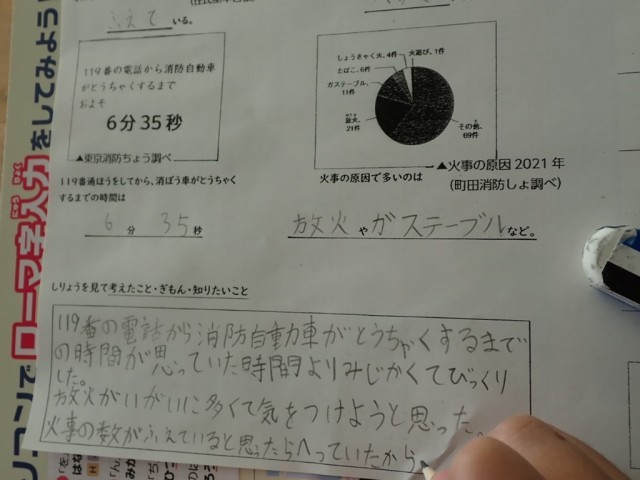 ふえて いる。
119番の電話から消防自動車
がとうちゃくするまで
およそ
6分35秒
▲東京消防ちょう調べ
しょうきゃく火、4件
火遊び、1件
たばこ、6件
ガステーブル、
11件
放火、
21件
その他、
69件
▲火事の原因 2021年
(町田消防しょ調べ)
119番通ほうをしてから、消ぼう車がとうちゃく
するまでの時間は
6 分 35 秒
火事の原因で多いのは
放火 や ガステーブル など。
しりょうを見て考えたこと・ぎもん・知りたいこと
119番の電話から消防自動車がとうちゃくするまで
の時間が思っていた時間よりみじかくてびっくり
した。
放火がいがいに多くて気をつけようと思った。
火事の数がふえていると思ったらへっていたから
ローマ字入力をしてみよう